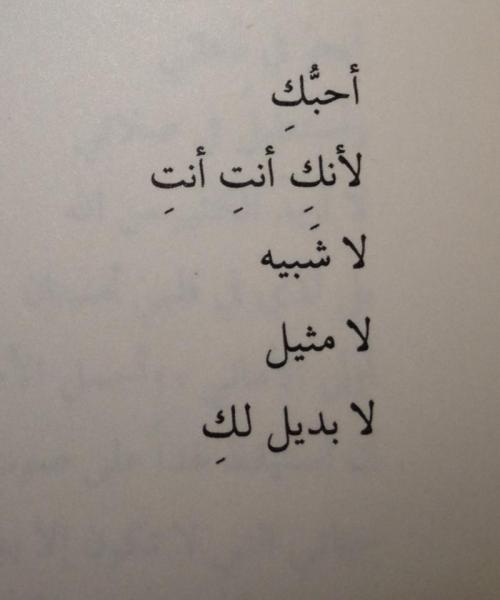 أحبُّكِ
لأنكِ أنتِ أنتِ
لا شَبيه
لا مثيل
لا بديل لكِ